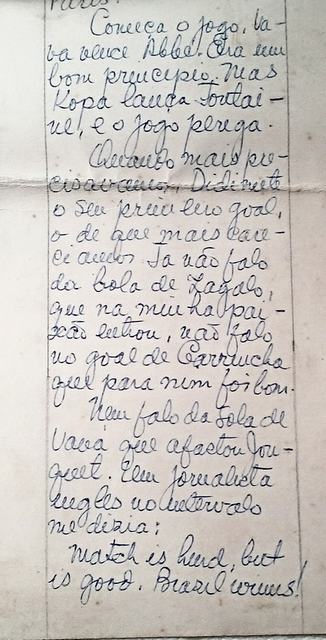 Paris.
Começa o jogo, Va-
vá vence Abbe. Era um
bom principio. Mas
Kopa lança Fontai-
ne, e o jogo perega.
Quando mais pre-
cisavamos, Didi mete
o seu primeiro goal,
o de que mais care-
ciamos. Já não falo
da bola de Zagalo,
que na minha pai-
xão entrou, não falo
no goal de Garrincha
que para mim foi bom.
Nem falo da sola de
Vavá que afastou Jon-
quet. Um jornalista
inglês no intervalo
me dizia:
Match is hard, but
is good. Brazil wins!